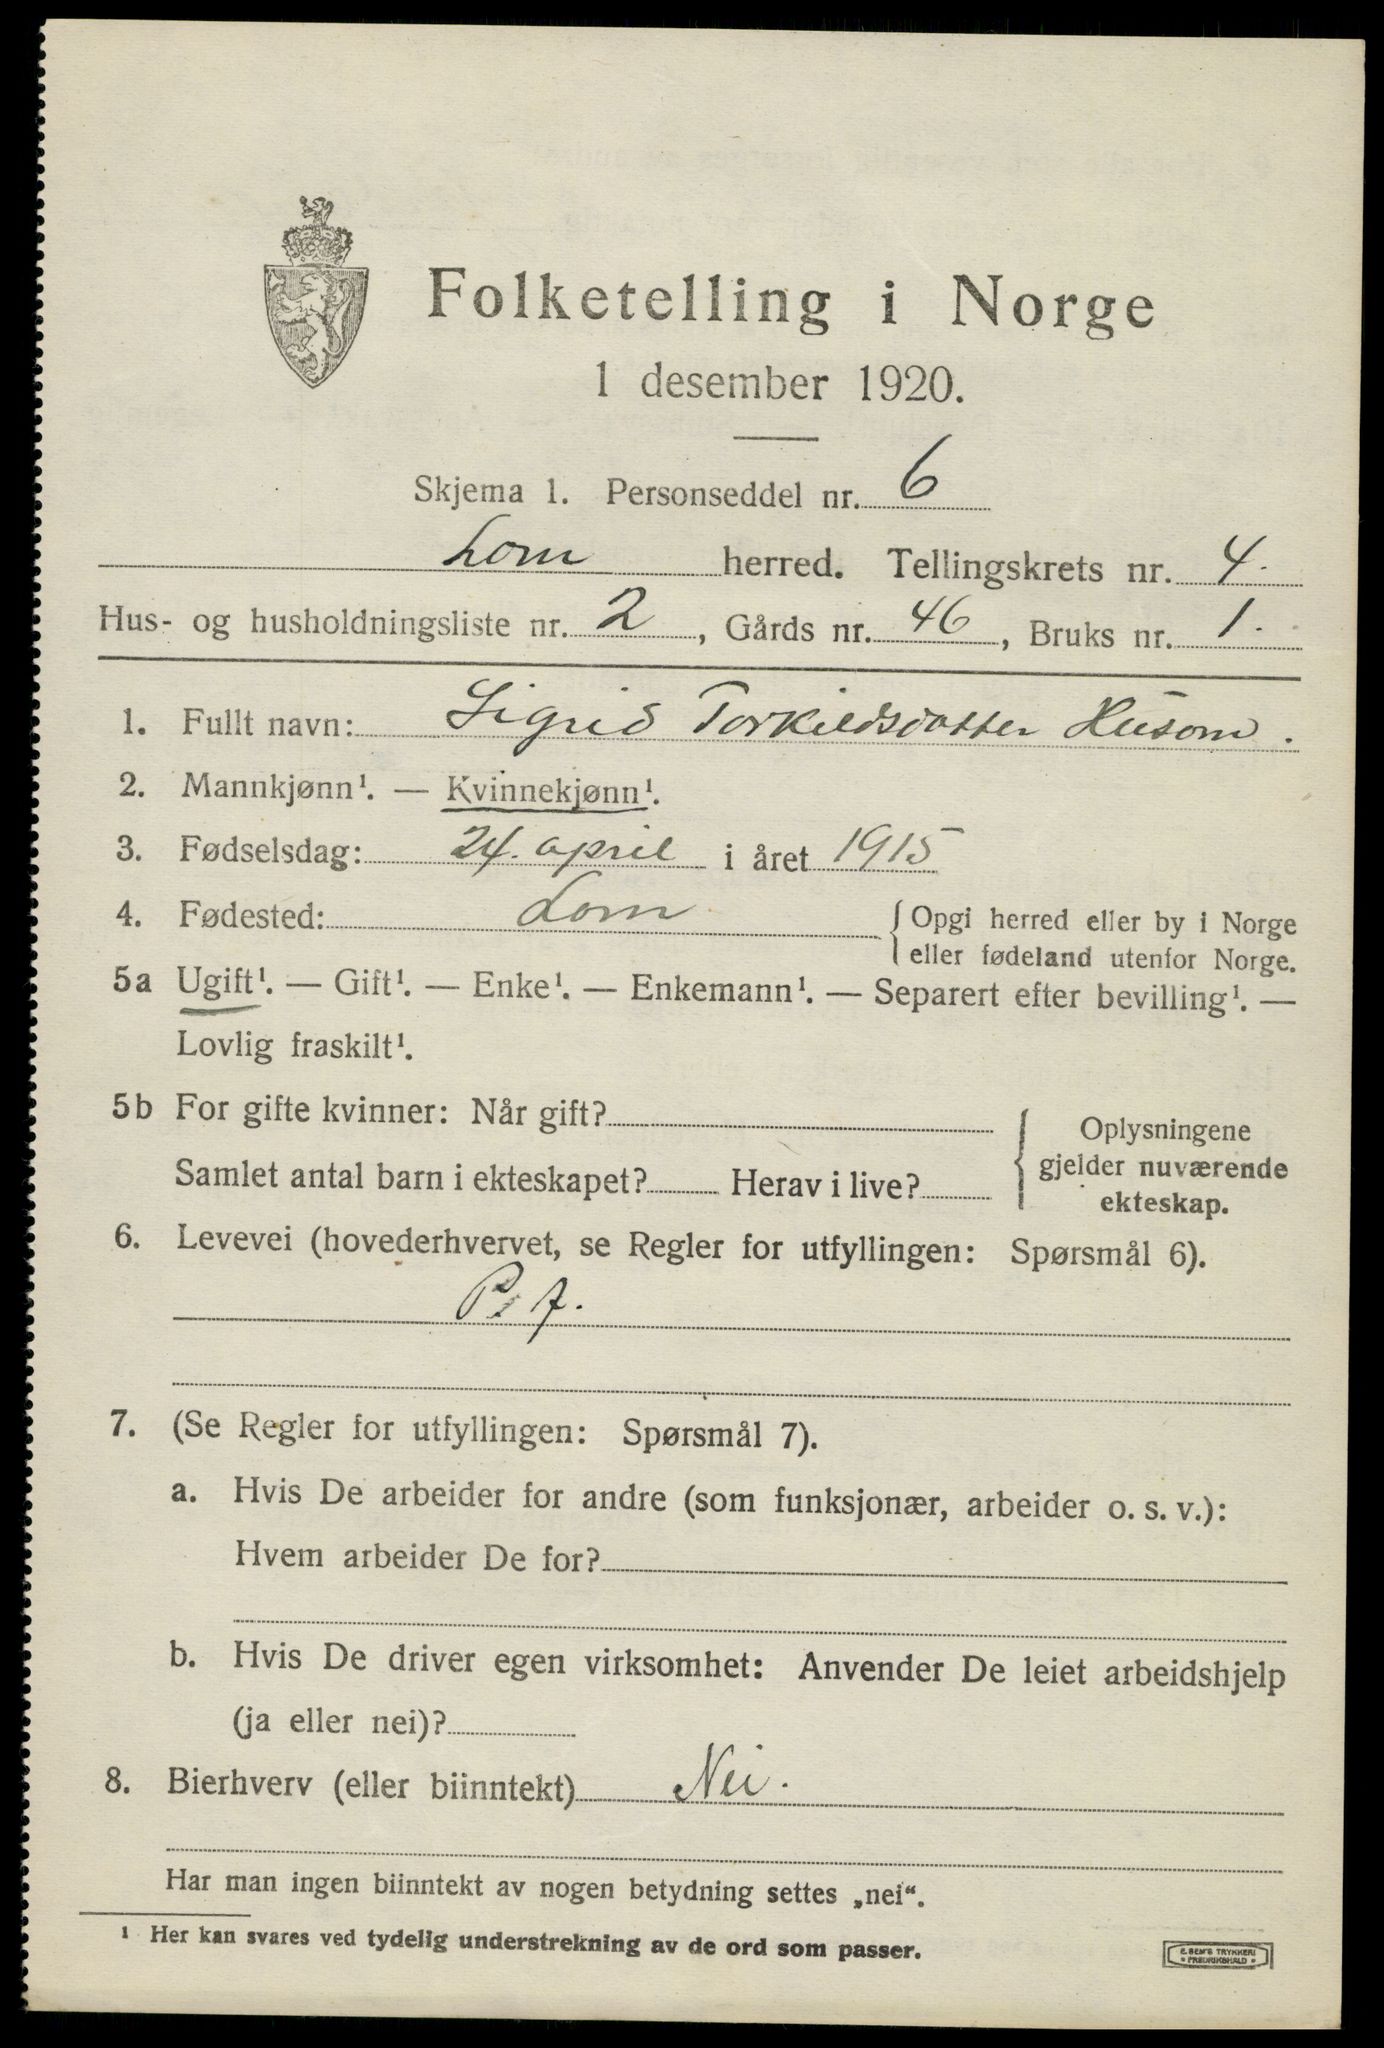 Folketelling i Norge
1 desember 1920.
Skjema 1. Personseddel nr. 6
Lom herred. Tellingskrets nr. 4.
Hus- og husholdningsliste nr. 2, Gårds nr. 46, Bruks nr. 1.
1. Fullt navn: Sigrid Torkildsdatter Husom.
2. Mannkjønn¹. — Kvinnekjønn¹.
3. Fødselsdag: 24. april i året 1915
4. Fødested: Lom { Opgi herred eller by i Norge
eller fødeland utenfor Norge.
5a Ugift¹. — Gift¹. — Enke¹. — Enkemann¹. — Separert efter bevilling¹. —
Lovlig fraskilt¹.
5b For gifte kvinner: Når gift? { Oplysningene
Samlet antal barn i ekteskapet? Herav i live? gjelder nuværende
ekteskap.
6. Levevei (hovederhvervet, se Regler for utfyllingen: Spørsmål 6).
7. (Se Regler for utfyllingen: Spørsmål 7).
a. Hvis De arbeider for andre (som funksjonær, arbeider o. s. v.):
Hvem arbeider De for?
b. Hvis De driver egen virksomhet: Anvender De leiet arbeidshjelp
(ja eller nei)?
8. Bierhverv (eller biinntekt) Nei.
Har man ingen biinntekt av nogen betydning settes „nei“.
¹ Her kan svares ved tydelig understrekning av de ord som passer.
E. SEM'S TRYKKERI
• FREDRIKSHALD •